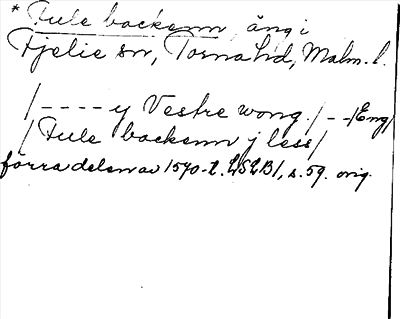 * Fule backenn, äng i
Fjelie sn, Torna hd, Malm. l.
/----y Vestre wong./--/Eng/
/Fule backenn j less/
förra delen av 1570-t. LSLB1, s. 59. orig.